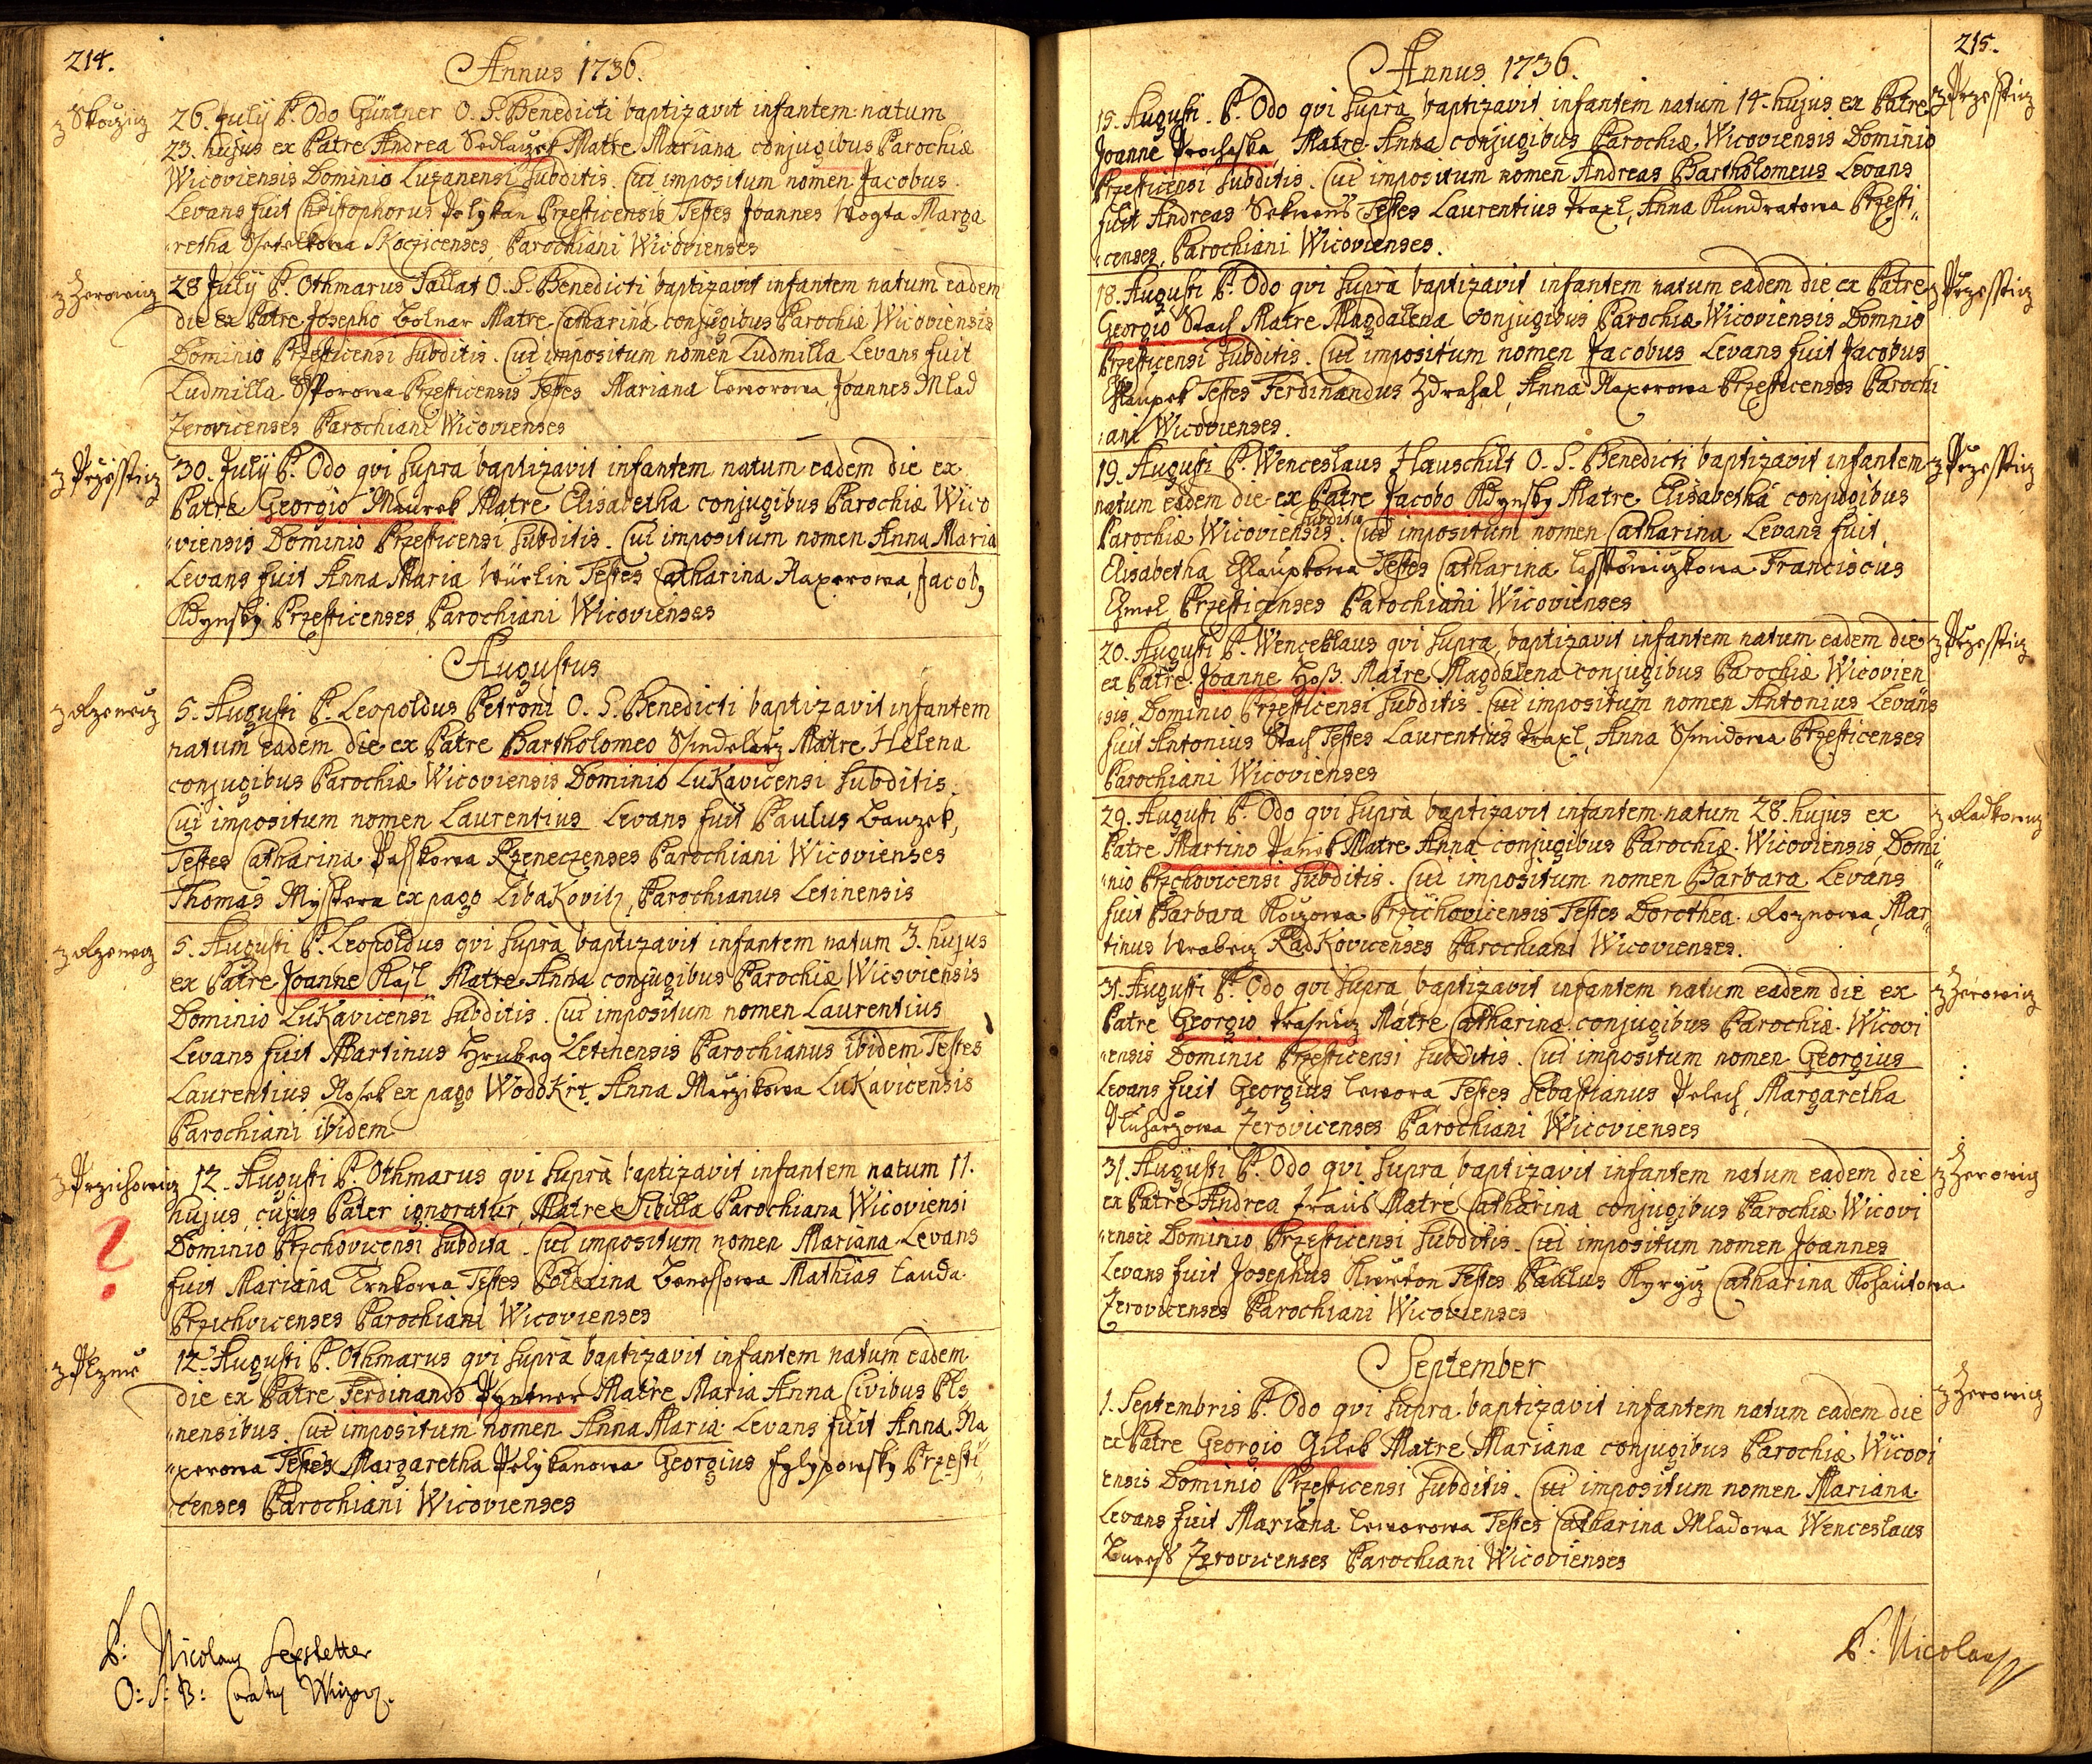 214.
Annus 1736.
z Skoczicz
26. July P. Odo Güntner O. S. Benedicti baptizavit infantem natum
23. hujus ex Patre Andrea Sedlaczek Matre Mariana conjugibus Parochiæ
Wicoviensis Dominio Luzanensi subditis. Cui impositum nomen Jacobus.
Levans fuit Christophorus Pelykan Przesticensis Testes Joannes Vogta Marga
retha Stetelkowa Skoczicenses, Parochiani Wicovienses
z Zerowicz
28 July P. Othmarus Sallat O. S. Benedicti baptizavit infantem natum eadem
die ex Patre Josepho Bolnar Matre Catharina conjugibus Parochiæ Wicoviensis
Dominio Przesticensi subditis. Cui impositum nomen Ludmilla Levans fuit
Ludmilla Sporowa Przesticensis Testes Mariana Cworowa Joannes Mlad
Zerovicenses Parochiani Wicovienses
z Przessticz
30. July P. Odo qui supra baptizavit infantem natum eadem die ex
Patre Georgio Maurek Matre Elisabetha conjugibus Parochiæ Wico
viensis Dominio Przesticensi subditis. Cui impositum nomen Anna Maria
Levans fuit Anna Maria Würlin Testes Catharina Naxerowa, Jacob9
Kdynsky Przesticenses Parochiani Wicovienses
Augustus
z Rzenecz
5. Augusti P. Leopoldus Petroni O. S. Benedicti baptizavit infantem
natum eadem die ex Patre Bartholomeo Ssindelarz Matre Helena
conjugibus Parochiæ Wicoviensis Dominio Lukavicensi subditis.
Cui impositum nomen Laurentius Levans fuit Paulus Bauzek,
Testes Catharina Passkowa Rzeneczenses Parochiani Wicovienses
Thomas Mystera ex pago Libakovitz, Parochianus Letinensis
z Rzenecz
5. Augusti P. Leopoldus qui supra baptizavit infantem natum 3. hujus
ex Patre Joanne Kasl Matre Anna conjugibus Parochiæ Wicoviensis
Dominio Lukavicensi subditis. Cui impositum nomen Laurentius
Levans fuit Martinus Hrubeg Letinensis Parochianus ibidem Testes
Laurentius Nosek ex pago Wodokrt, Anna Marzikowa Lukavicensis
Parochiani ibidem
z Przichowicz
12. Augusti P. Othmarus qui supra baptizavit infantem natum 11.
hujus, cujus Pater ignoratur, Matre Sibilla Parochiana Wicoviensi
Dominio Przchovicensi subdita. Cui impositum nomen Mariana. Levans
fuit Mariana Trnkowa Testes Polexina Benessowa Mathias Cauda
Przichvicenses Parochiani Wicovienses
?
z Plzně
12. Augusti P. Othmarus qui supra baptizavit infantem natum eadem
die ex Patre Ferdinando Pyntner Matre Maria Anna Civibus Pls
nensibus. Cui impositum nomen Anna Maria Levans fuit Anna Na
xerowa Testes Margaretha Pelykanowa Georgius Chlypowsky Przesti
censes Parochiani Wicovienses
P: Nicolaus Sepstetter
O: S: B: Curatus Wizov.
215.
Annus 1736.
z Przessticz
15. Augusti. P. Odo qui supra baptizavit infantem natum 14. hujus ex Patre
Joanne Prochaska, Matre Anna conjugibus Parochiæ Wicoviensis Dominio
Przesticensi subditis. Cui impositum nomen Andreas Bartholomeus Levans
fuit Andreas Sekwens Testes Laurentius Traxl, Anna Kundratowa Przesti
censes, Parochiani Wicovienses.
z Przessticz
18. Augusti P. Odo qui supra baptizavit infantem natum eadem die ex Patre
Georgio Stach Matre Magdalena conjugibus Parochiæ Wicoviensis Domnio
Przesticensi subditis. Cui impositum nomen Jacobus Levans fuit Jacobus
Chlaupek Testes Ferdinandus Zdrahal, Anna Naxerowa Przesticenses Parochi
ani Wicovienses.
z Przessticz
19. Augusti P. Wenceslaus Hauschilt O. S. Benedicti baptizavit infantem
natum eadem die ex Patre Jacobo Kdynsky Matre Elisabetha conjugibus
Parochiæ Wicoviensis subditis. Cui impositum nomen Catharina Levans fuit
Elisabetha Chlaupkowa Testes Catharina Franciscus
Chmel Przesticenses Parochiani Wicovienses
z Przessticz
20. Augusti P. Wenceslaus qui supra, baptizavit infantem natum eadem die
ex Patre Joanne Hoss. Matre Magdalena conjugibus Parochiæ Wicovien
sis, Dominio Przesticensi subditis. Cui impositum nomen Antonius Levans
fuit Antonius Stach Testes Laurentius Traxl, Anna Smidowa Przesticenses
Parochiani Wicovienses
z Radkowicz
29. Augusti P. Odo qui supra baptizavit infantem natum 28. hujus ex
Patre Martino Panek Matre Anna conjugibus Parochiæ Wicoviensis, Domi
nio Przchovicensi subditis. Cui impositum nomen Barbara Levans
fuit Barbara Przichovicensis Testes Dorothea Roznowa, Mar
tinus Wrabecz Radkovicenses Parochiani Wicovienses.
z Zerowicz
31. Augusti P. Odo qui supra, baptizavit infantem natum eadem die ex
Patre Georgio Krasnicz Matre Catharina conjugibus Parochiæ Wicovi
ensis Dominio Przesticensi subditis. Cui impositum nomen Georgius
Levans fuit Georgius Cwora Testes Sebastianus Pelech, Margaretha
Pluharzowa Zerovicenses Parochiani Wicovienses
z Zerowicz
31. Augusti P. Odo qui supra, baptizavit infantem natum eadem die
ex Patre Andrea Kraus Matre Catharina conjugibus Parochiæ Wicovi
ensis Dominio Przesticensi subditis. Cui impositum nomen Joannes
Levans fuit Josephus Kweton Testes Paulus Kyrycz Catharina Kohautowa
Zerovicenses Parochiani Wicovienses
September
z Zerowicz
1. Septembris P. Odo qui supra baptizavit infantem natum eadem die
ex Patre Georgio Gilek Matre Mariana conjugibus Parochiæ Wicovi
ensis Dominio Przesticensi subditis. Cui impositum nomen Mariana.
Levans fuit Mariana Cworowa Testes Catharina Mladowa Wenceslaus
Buress Zerovicenses Parochiani Wicovienses
P: Nicolaus